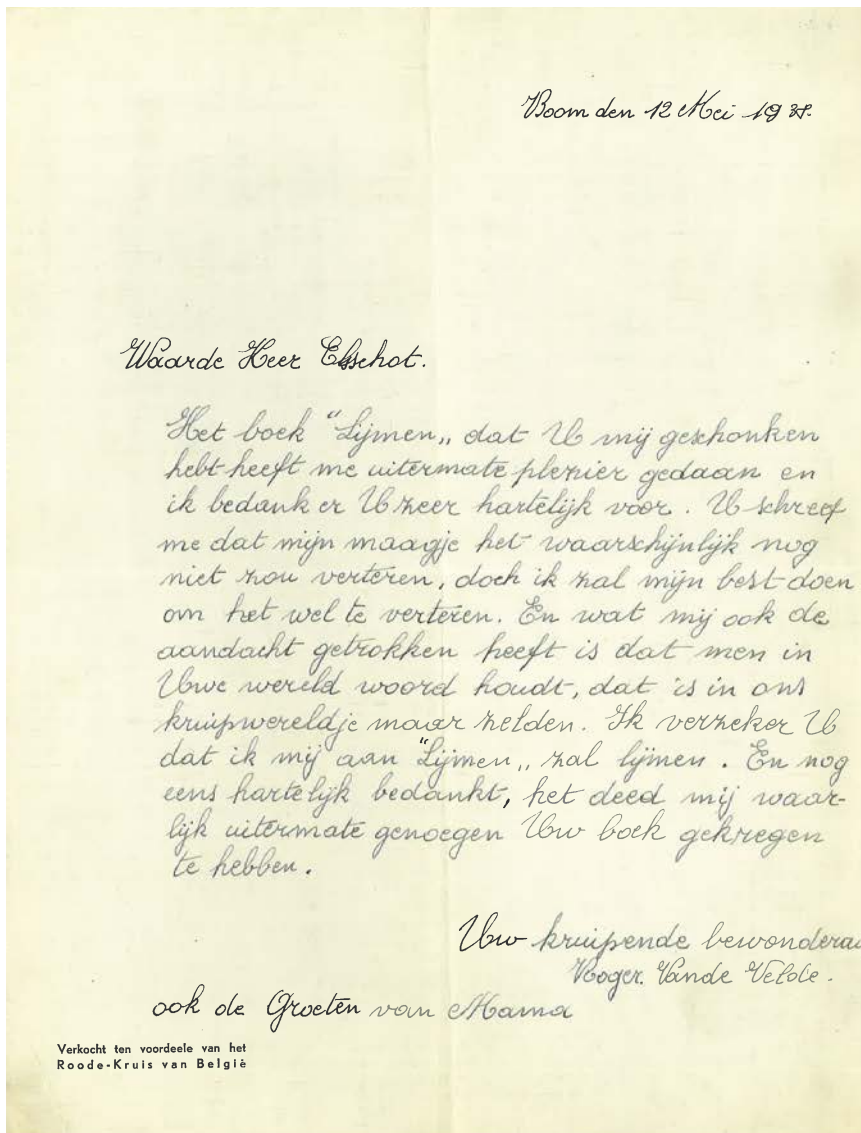 Boom den 12 Mei 19
Waarde Heer Elsschot.
Het boek "Lijmen„ dat U mij geschonken
hebt heeft me uitermate plezier gedaan en
ik bedank er U zeer hartelijk voor. U schreef
me dat mijn maagje het waarschijnlijk nog
niet zou verteren, doch ik zal mijn best doen
om het wel te verteren. En wat mij ook de
aandacht getrokken heeft is dat men in
Uwe wereld woord houdt, dat is in ons
kruipwereldje maar zelden. Ik verzeker U
dat ik mij aan "Lijmen„ zal lijmen. En nog
eens hartelijk bedankt, het deed mij waar-
lijk uitermate genoegen Uw boek gekregen
te hebben.
Uw kruipende bewondera
Roger. Vande Velde.
ook de Groeten van Mama
Verkocht ten voordeele van het
Roode-Kruis van België